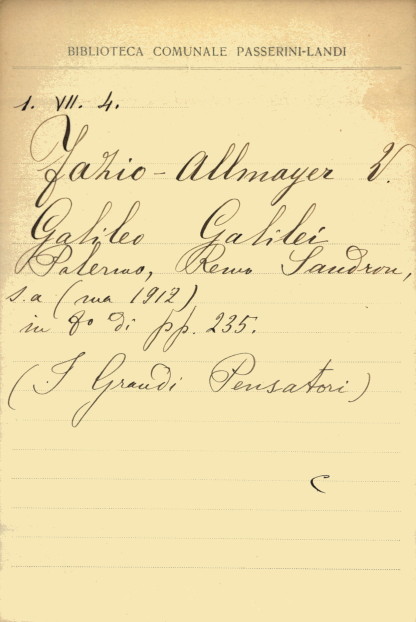 BIBLIOTECA COMUNALE PASSERINI-LANDI
1. VII. 4.
Fazio-Allmayer V.
Galileo Galilei
Palermo, Remo Sandron,
s.a (ma 1912)
in 8º di pp. 235.
(I Grandi Pensatori)
C